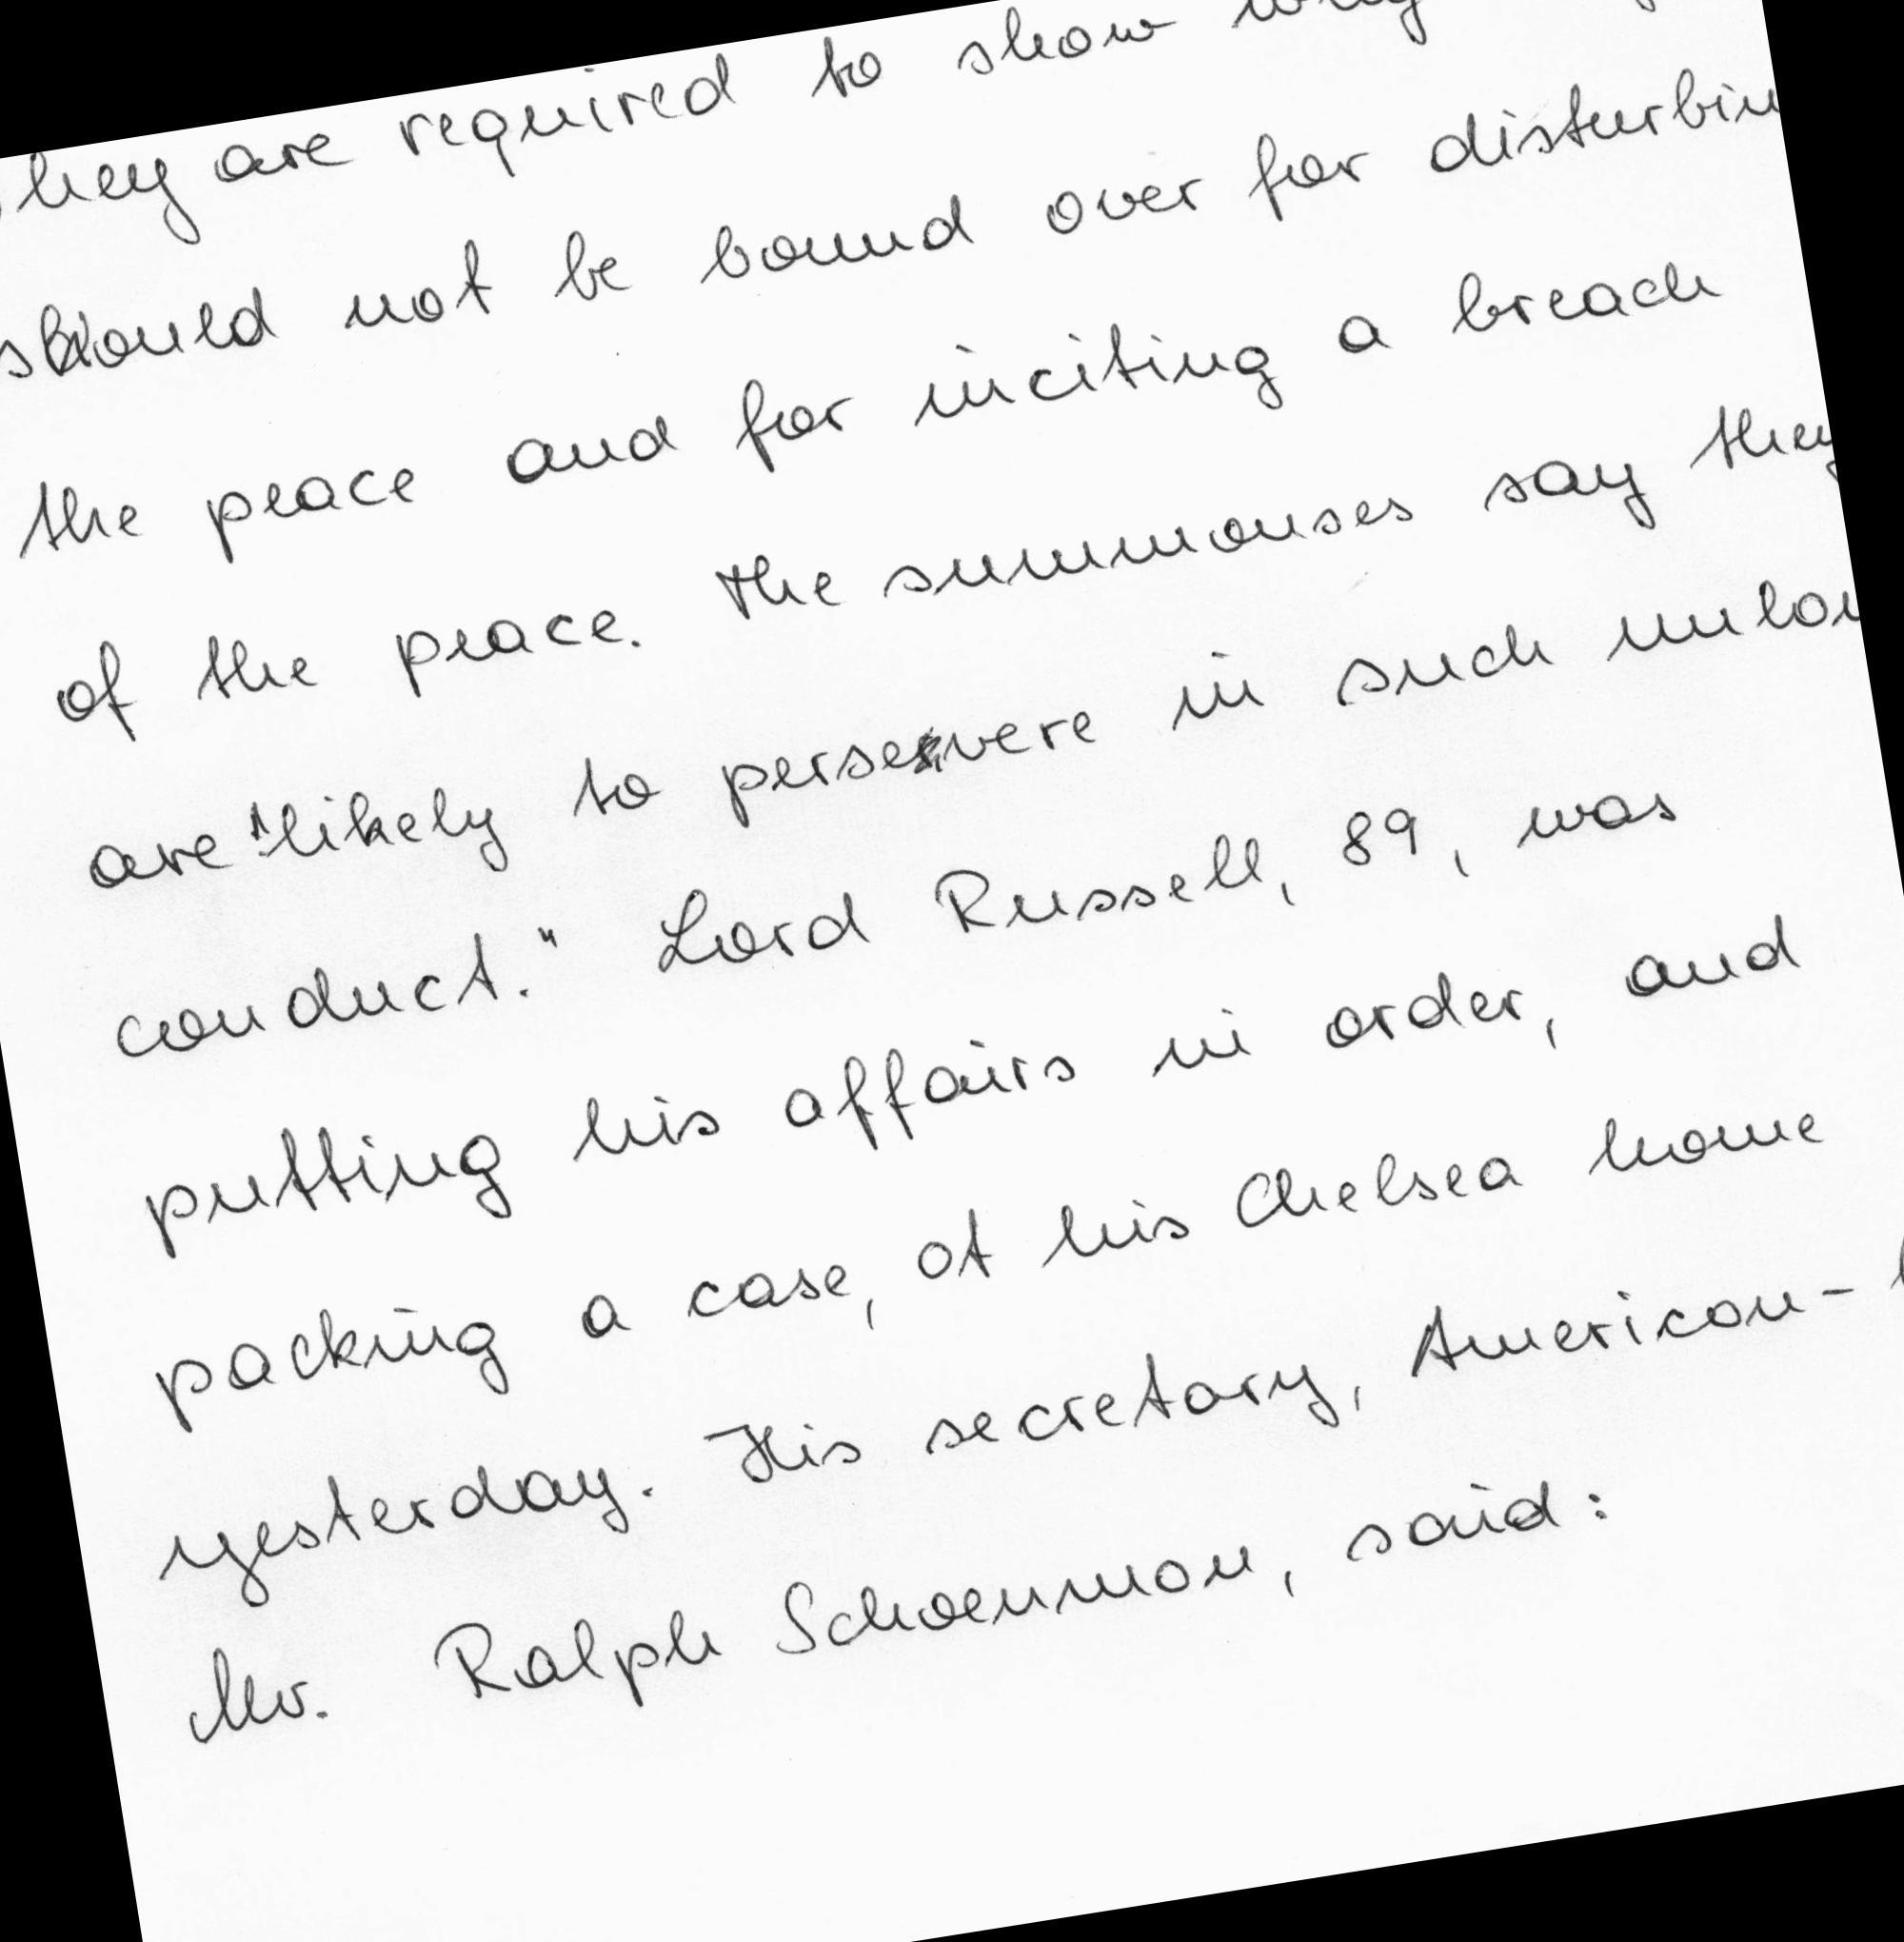 they are required to show why
should not be bound over for disturbin
the peace and for inciting a breach
of the peace. The summonses say they
are "likely to persevere in such
conduct." Lord Russell, 89, was
putting his affairs in order, and
packing a case, at his Chelsea home
yesterday. His secretary, American-
Mr. Ralph Schoenman, said: